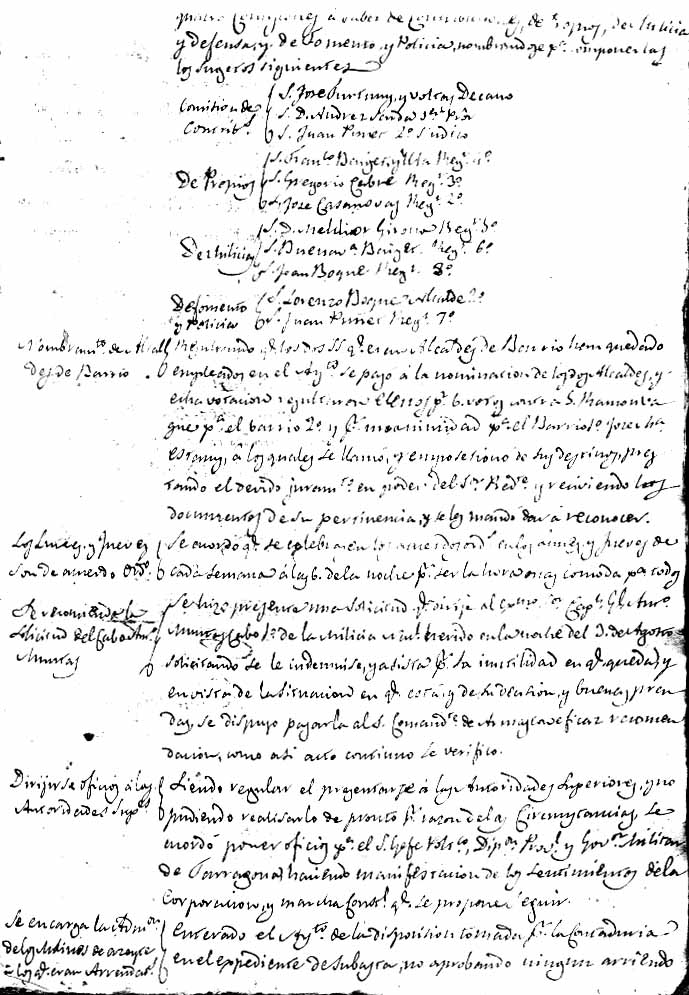 quatro Comisiones á saber de Contribuciones, de Propios, de Milicia
y defensa, y de Fomento y Policia, nombrandose pª componerlas
los Sugetos siguientes
Comision de Contribs.
S. Jose Fortuny, y Voltas Decano
S. D. Andres 1er
S. Juan 2º Sindico
De Propios
S. Franco Regr. 4º
S. Gregorio Cabré Regr. 3º
S. Jose Casanovas Regr. 2º
De Milicia
S. D. Melchor Regr. 5º
S. Buenava Regr. 6º
S. Joan Boqué Regr. 8º
De Fomento y Policia
S. Lorenzo Boqué Alcalde 2º
S. Juan Regr. 7º
Nombramto de Alcaldes de Barrio
Resultando q. los dos SS. q. eran Alcaldes de Barrio han quedado
empleados en el Ayto se pasó á la nominacion de los dos Alcaldes, y
echa votacion resultaron Electos pr. 6 votos contra S. Ramon
que pª el barrio 2º y pr. unanimidad pª el Barrio 1º Josef
á los quales se llamó, y en posesion de sus destinos, pres
tando el devido juramto en poder del Sr. y reciviendo los
documentos de su pertinencia, y se los mandó dar á reconocer.
Los Lunes, y Jueves son de acuerdo Ordo.
Se acordó q. se celebrasen los acuerdos ords en los Lunes, y Jueves de
cada semana á las 6. de la noche pr. ser la hora mas comoda pª todos
Se recomienda la solicitud del Cabo Anto.
Se hizo presente una solicitud q. dirije al Exmo. Sr. Capn. Gl. Anto.
Cabo 1º de la Milicia herido en la noche del 3. de Agosto
solicitando se le indemnise, y asista pr. la inutilidad en q. queda, y
en vista de la situacion en q. está, y de su decision, y buenas pren
das, se dispuso pasarla al S. Comande. de Armas con eficaz recomen
dacion, como asi acto continuo se verificó.
Dirijirse oficios á las Autoridades Supes.
Siendo regular el presentarse á las Autoridades Superiores, y no
pudiendo realisarlo de pronto pr. razon de las Circunstancias, se
acordó poner oficios pª el S. Gefe Polco, Dipon Provl. y Govr. Militar
de Tarragona haciendo manifestacion de los Sentimientos de la
Corporacion, y marcha Constl. q. se propone seguir.
Se encarga la Admon. de los Molinos de azeyte á los q. eran Arrendats.
Enterado el Ayto de la disposicion tomada pr. la Contaduria
en el expediente de Subasta, no aprobando ningun arriendo